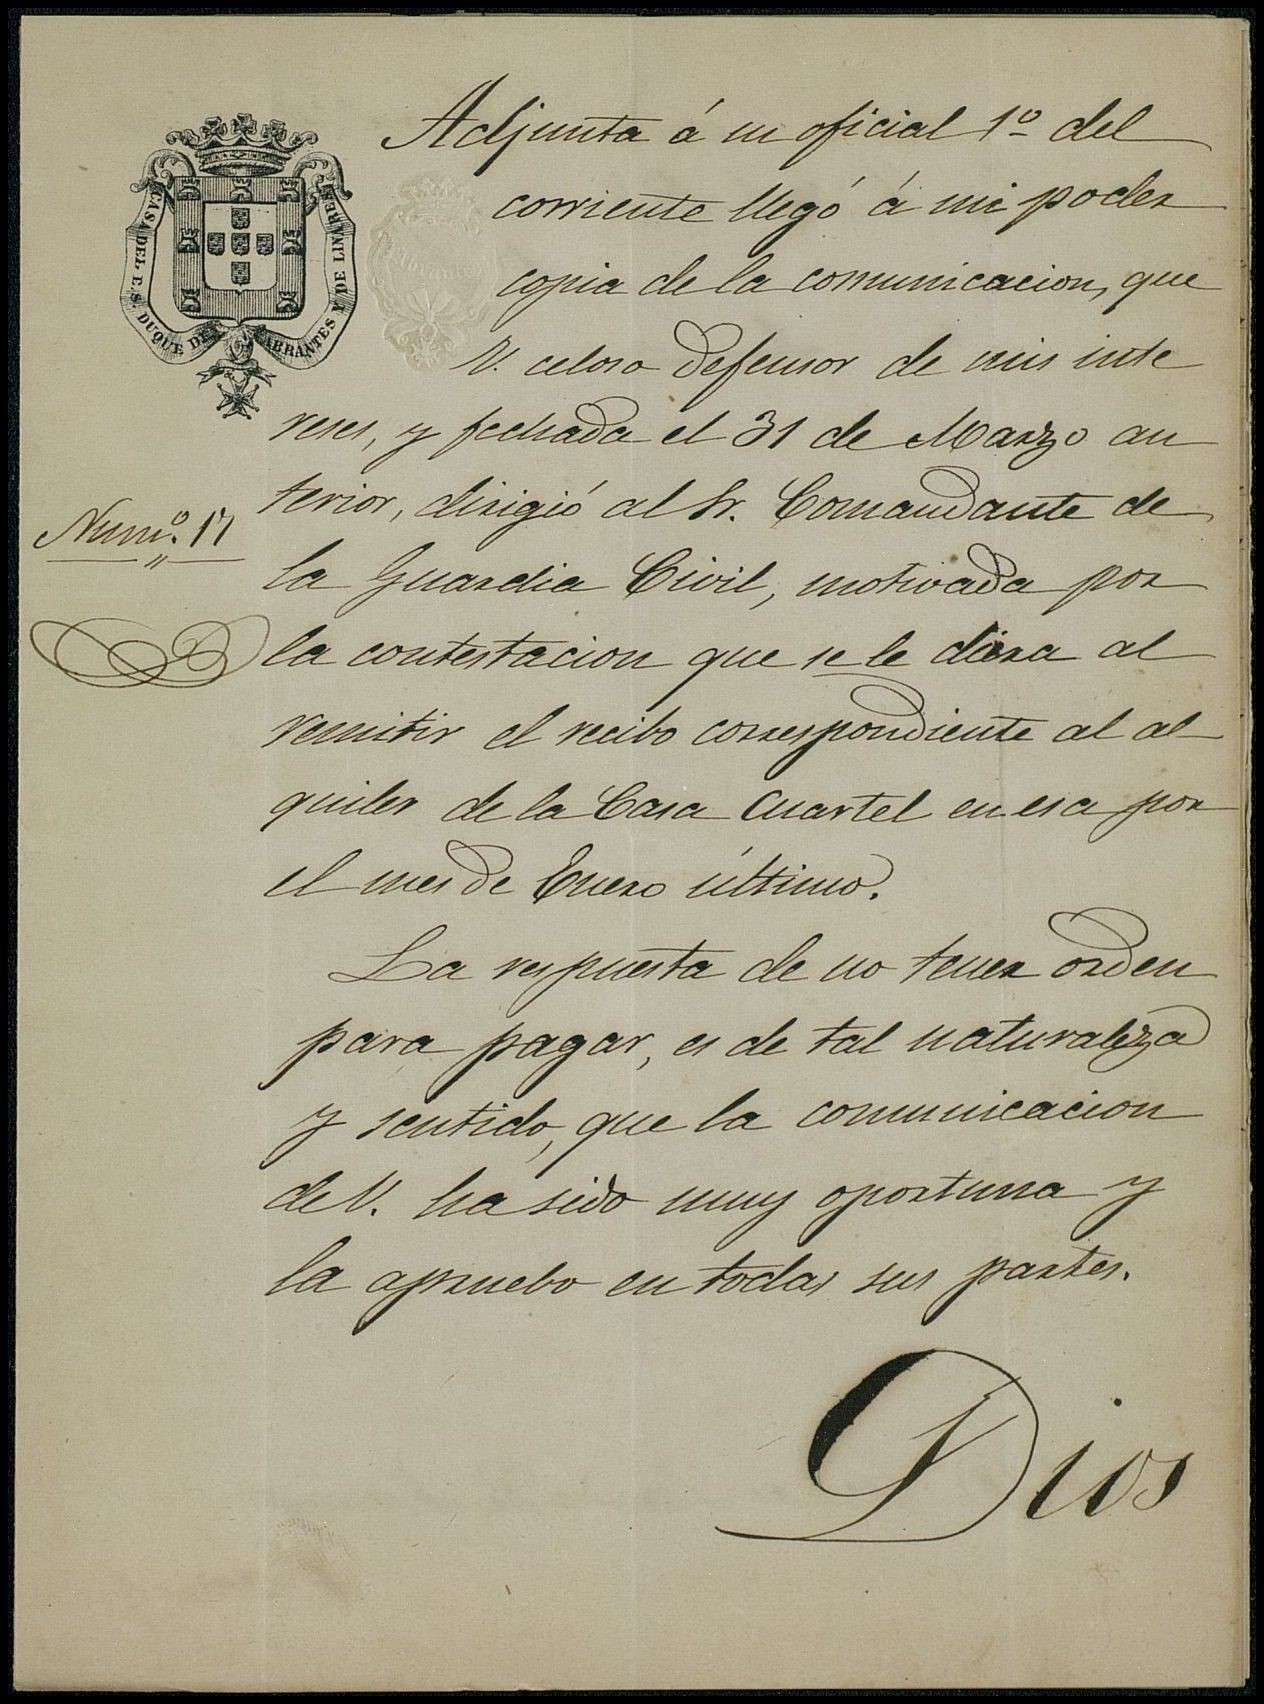 CASA DEL E.S. DUQUE DE ABRANTES Y DE LINARES
Adjunta á su oficial 1º del
corriente llegó á mi poder
copia de la comunicacion, que
V. celoso defensor de mis inte
reses, y fechada el 31 de Marzo an
terior, dirigió al Sr. Comandante de
Numº. 17
la Guardia Civil, motivada por
la contestacion que se le diera al
remitir el recibo correspondiente al al
quiler de la Casa Cuartel en esa por
el mes de Enero último.
La respuesta de no tener orden
para pagar, es de tal naturaleza
y sentido, que la comunicacion
de V. ha sido muy oportuna y
la apruebo en todas sus partes.
Dios